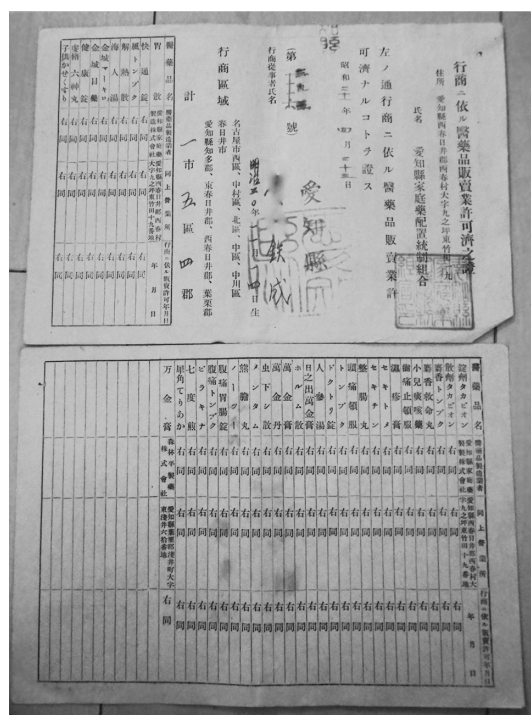 行商ニ依ル醫藥品販賣業許可濟之證
住所 愛知縣西春日井郡西春村大字九之坪東竹田
氏名 愛知縣家庭藥配置統制組合
左ノ通行商ニ依ル醫藥品販賣業許
可濟ナルコトヲ證ス
昭和二十一年
愛知縣
行商從事者氏名
行商區域
名古屋市西區、中村區、北區、中區、中川區
春日井市
愛知縣知多郡、東春日井郡、西春日井郡、葉栗郡
計 一市五區四郡
醫藥品名 醫藥品製造業者 同上營業所 行商ニ依ル販賣許可年月日
胃散 愛知縣家庭藥製造株式會社 愛知縣西春日井郡西春村大字九之坪東竹田十九番地 年 月 日
快通錠 右同 右同 右同
風トンプク 右同 右同 右同
解熱散 右同 右同 右同
海人湯 右同 右同 右同
金城マーキロ 右同 右同 右同
金城目藥 右同 右同 右同
健康錠 右同 右同 右同
六神丸 右同 右同 右同
子供かぜくすり 右同 右同 右同
醫藥品名 醫藥品製造業者 同上營業所 行商ニ依ル販賣許可年月日
錠劑タカビオン 愛知縣家庭藥製造株式會社 愛知縣西春日井郡西春村大字九之坪東竹田十九番地 年 月 日
散劑タカビオン
麝香トンプク 右同 右同 右同
麝香救命丸 右同 右同 右同
小兒痰咳藥 右同 右同 右同
齒痛止頓服 右同 右同 右同
濕疹膏 右同 右同 右同
セキトメ 右同 右同 右同
セキチン 右同 右同 右同
整腸丸 右同 右同 右同
頭痛頓服 右同 右同 右同
トンプク 右同 右同 右同
ドクトリ錠 右同 右同 右同
人參湯 右同 右同 右同
日之出萬金膏 右同 右同 右同
ホルム散 右同 右同 右同
萬金膏 右同 右同 右同
萬金丹 右同 右同 右同
虫下シ散 右同 右同 右同
メンタム 右同 右同 右同
熊膽丸 右同 右同 右同
ノーソ 右同 右同 右同
腹痛胃腸錠 右同 右同 右同
腹痛トンプク 右同 右同 右同
ビラキナ 右同 右同 右同
七度煎 右同 右同 右同
犀角てりあか 右同 右同 右同
万金膏 森林平製藥株式會社 愛知縣葉栗郡淺井町大字東淺井六拾番地 右同